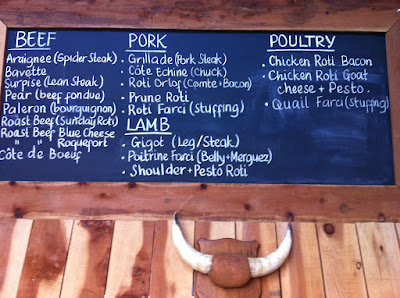 BEEF
Araignee (Spider Steak)
Bavette
Surprise (Lean Steak)
Pear (beef fondue)
Paleron (bourguignon)
Roast Beef (Sunday Roti)
Roast Beef Blue Cheese
" " Roquefort
Côte de Boeuf
PORK
· Grillade (Pork Steak)
· Côte Echine (Chuck)
· Roti Orlof (Comte + Bacon)
· Prune Roti
· Roti Farci (stuffing)
LAMB
· Gigot (Leg/Steak)
· Poitrine Farci (Belly + Merguez)
· Shoulder + Pesto Roti
POULTRY
· Chicken Roti Bacon
· Chicken Roti Goat
cheese + Pesto.
· Quail Farci (stuffing)